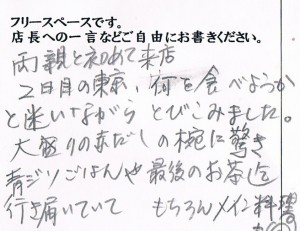 フリースペースです。
店長への一言などご自由にお書きください。
両親と初めて来店
2日目の東京、何を食べようか
と迷いながら とびこみました。
大盛りの赤だしの椀に驚き
青ジソごはんや最後のお茶迄
行き届いていて もちろんメイン料理